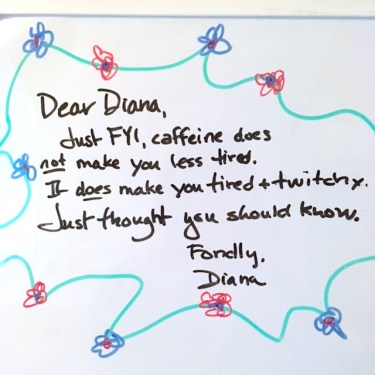 Dear Diana,
Just FYI, caffeine does
not make you less tired.
It does make you tired + twitchy.
Just thought you should know.
Fondly,
Diana